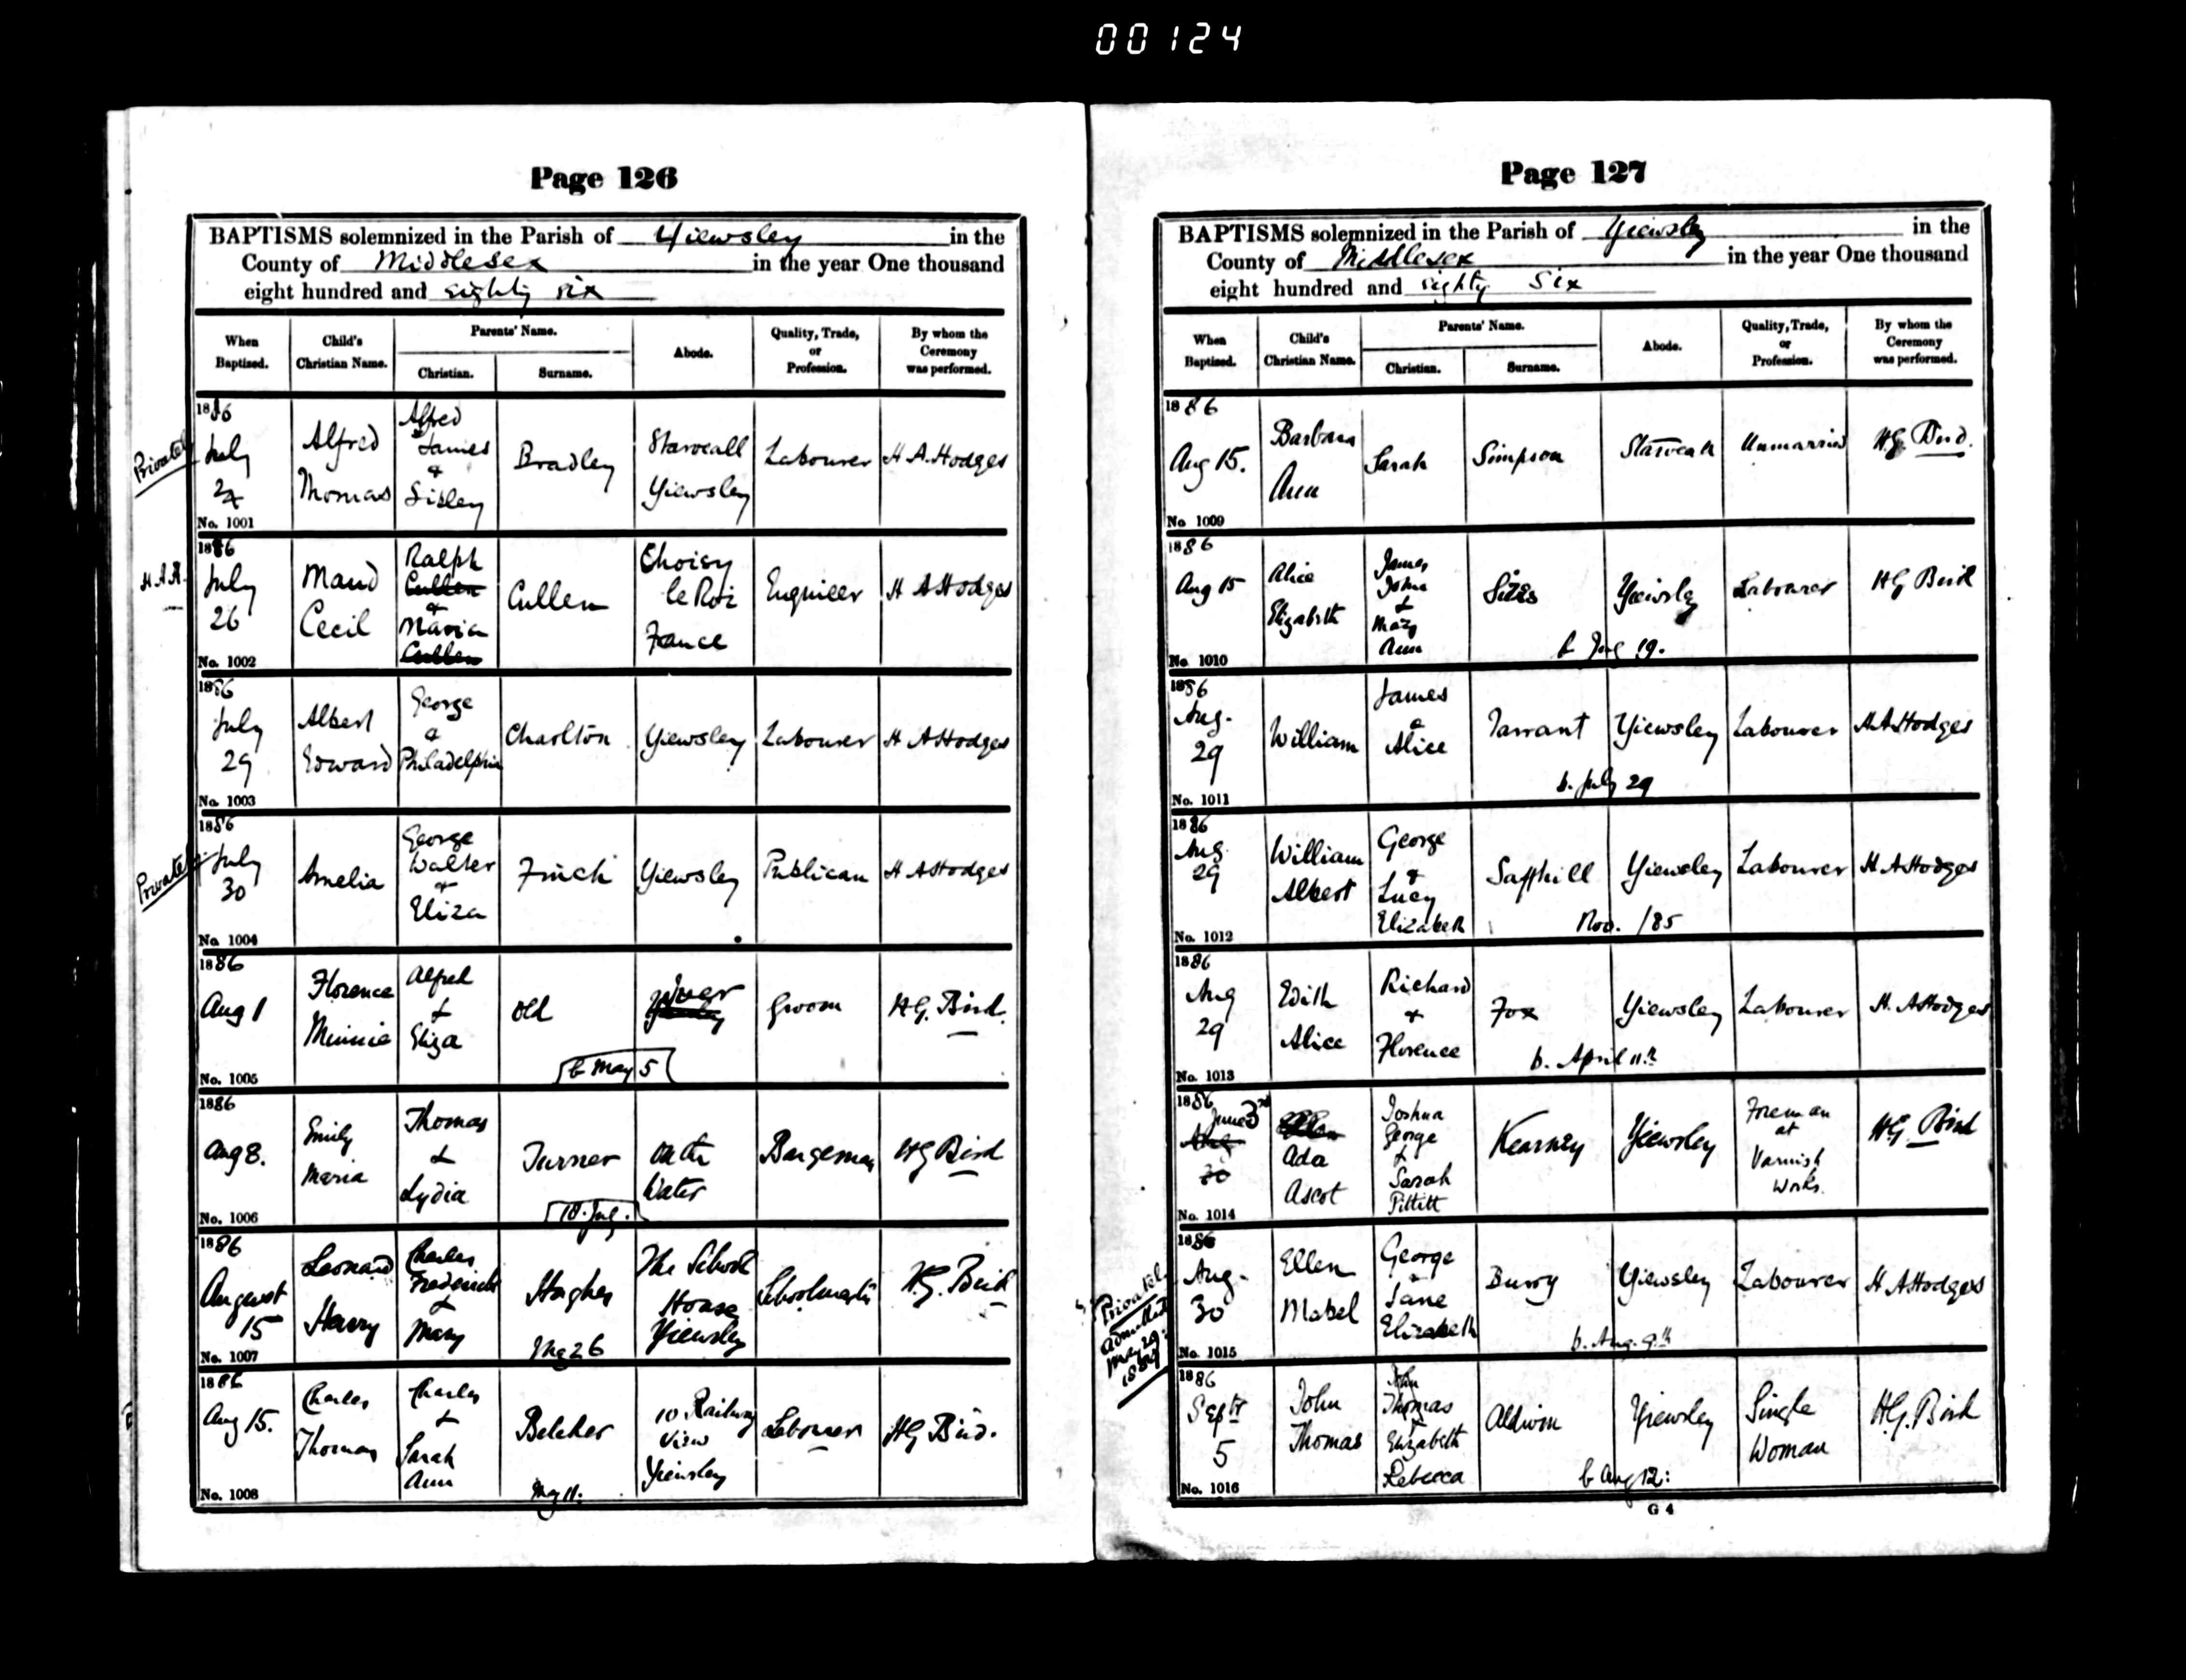 00124
Page 126
BAPTISMS solemnized in the Parish of Yiewsley in the
County of Middlesex in the year One thousand
eight hundred and eighty six
When Baptized. Child's Christian Name. Parents' Name. Christian. Surname. Abode. Quality, Trade, or Profession. By whom the Ceremony was performed.
Privately
1886 July Alfred Thomas Alfred James & Bradley Starveall Yiewsley Labourer H A. Hodges
No. 1001
1886 July 26 Maud Cecil Ralph Cullen & Maria Cullen Cullen Choisy le Roi France Engineer H A Hodges
No. 1002
1886 July 29 Albert Edward George & Philadelphia Charlton Yiewsley Labourer H A Hodges
No. 1003
Privately
1886 July 30 Amelia George Walter & Eliza Finch Yiewsley Publican H A Hodges
No. 1004
1886 Aug 1 Florence Minnie Alfred & Eliza Old Iver Groom H.G. Bird.
b May 5
No. 1005
1886 Aug 8. Emily Maria Thomas & Lydia Turner on the Water Bargeman HG Bird
No. 1006
1886 August 15 Leonard Harry Charles Frederick & Mary Hughes The School House Yiewsley Schoolmaster H.G. Bird
No. 1007
1886 Aug 15. Charles Thomas Charles & Sarah Ann Belcher 10 Railway View Yiewsley Labourer HG Bird.
No. 1008
Page 127
BAPTISMS solemnized in the Parish of Yiewsley in the
County of Middlesex in the year One thousand
eight hundred and eighty six
When Baptized. Child's Christian Name. Parents' Name. Christian. Surname. Abode. Quality, Trade, or Profession. By whom the Ceremony was performed.
1886 Aug 15. Barbara Ann Sarah Simpson Starveall Unmarried H.G. Bird.
No 1009
1886 Aug 15 Alice Elizabeth James John & Mary Ann Yiewsley Labourer HG Bird
No. 1010
1886 Aug. 29 William James & Alice Tarrant Yiewsley Labourer H.A. Hodges
b. July 29
No. 1011
1886 Aug. 29 William Albert George & Lucy Elizabeth Sapthill Yiewsley Labourer H. A Hodges
Nov. /85
No. 1012
1886 Aug 29 Edith Alice Richard & Florence Fox Yiewsley Labourer H. A Hodges
b. April 11th
No. 1013
1886 June 3rd Aug 30 Ada Ascot Joshua George & Sarah Pittitt Kearney Yiewsley Foreman at Varnish Works. HG Bird
No. 1014
Privately admitted May 29 1887
1886 Aug. 30 Ellen Mabel George & Jane Elizabeth Burry Yiewsley Labourer H. A Hodges
b. Aug. 9th
No. 1015
1886 Septr 5 John Thomas John Thomas & Elizabeth Rebecca Aldwin Yiewsley Single Woman H.G. Bird
b Aug 12:
No. 1016
G 4